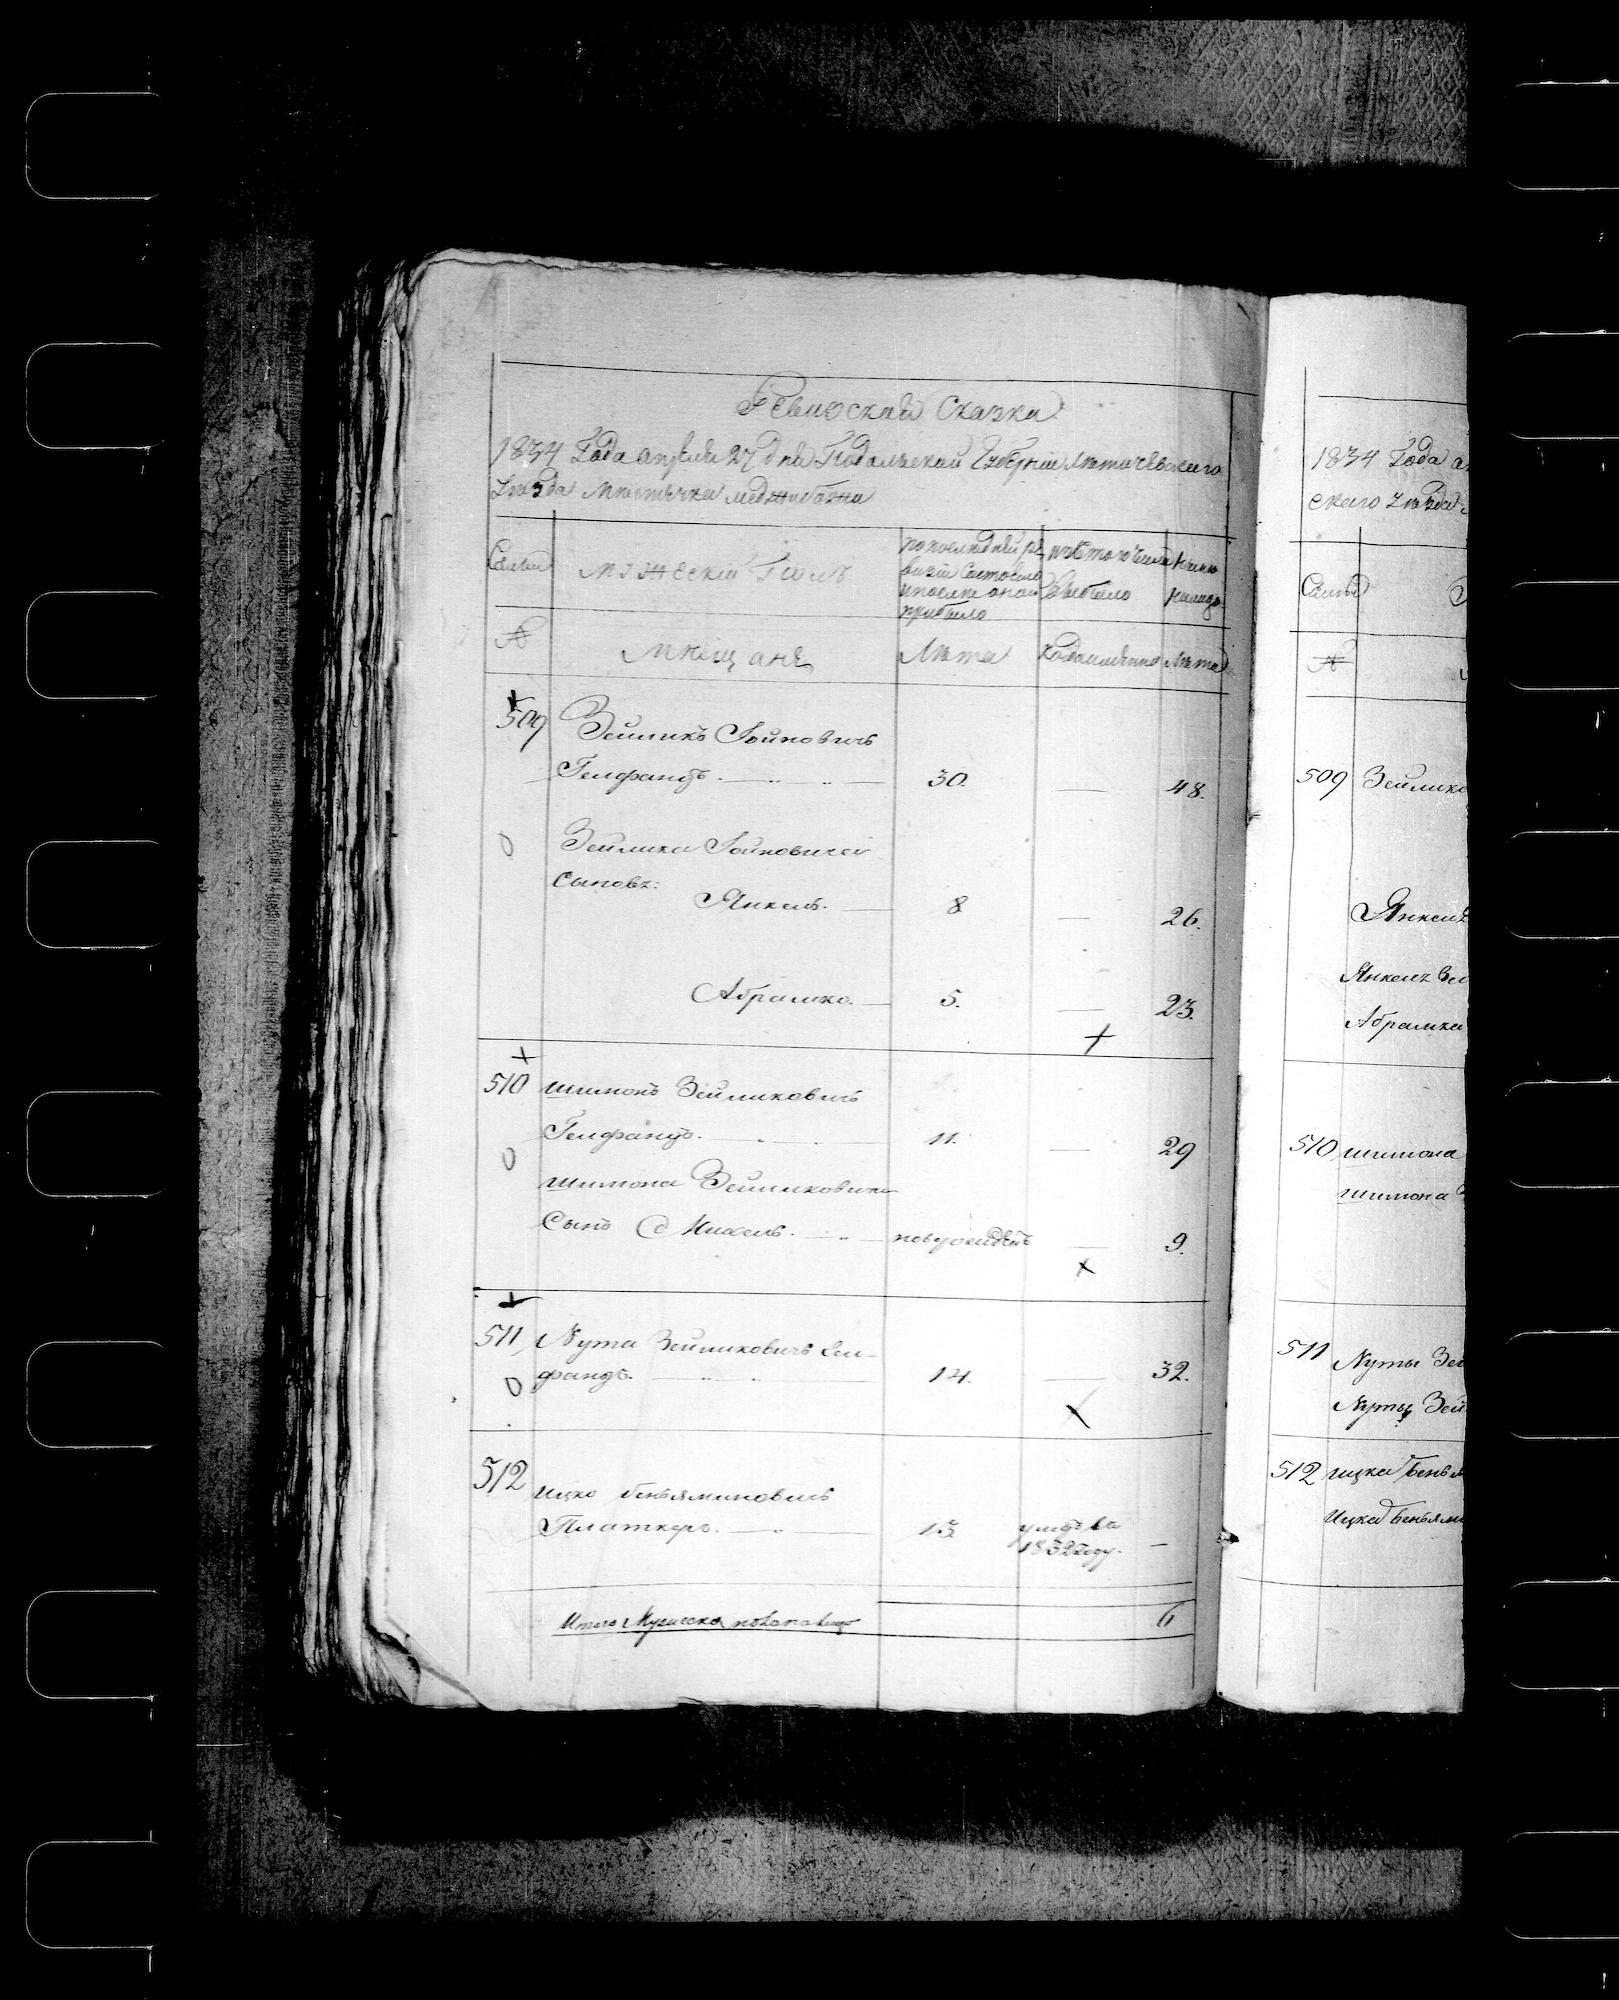 Ревизская Сказка
1834 Года апреля 27 дня Подольской Губернии Летичевского
уезда местечка меджибожа
Семьи
мужеский Полъ
по последней ре
визии Состояло
и после оной
прибыло
изъ того числа
Выбыло
Ныне
налицо
№
мещане
Лета
когда именно
Лета
509 Зейликъ Іойновичь
Гелфандъ. 30. — 48.
Зейлика Іойновича
Сыновя:
Янкель. — 8 — 26.
Абрамко. — 5. — 23.
510 Шимонъ Зейликовичь
Гелфандъ. 11. — 29
Шимона Зейликовича
Сынъ Михель. новорожденъ — 9.
511 Нута Зейликовичь Гел-
фандъ. 14. — 32.
512 Ицко беньяминовичь
Платкеръ. 13 умеръ въ
1832 году. —
Итого Мужеска пола на лицо 6
1834 Года а
ского уезда
Семьи
№
509 Зейлика
Янкеля
Янкеля Зей
Абрамка
510 шимона
шимона З
511 Нуты Зей
Нуты Зей
512 ицка беньям
Ицка беньями